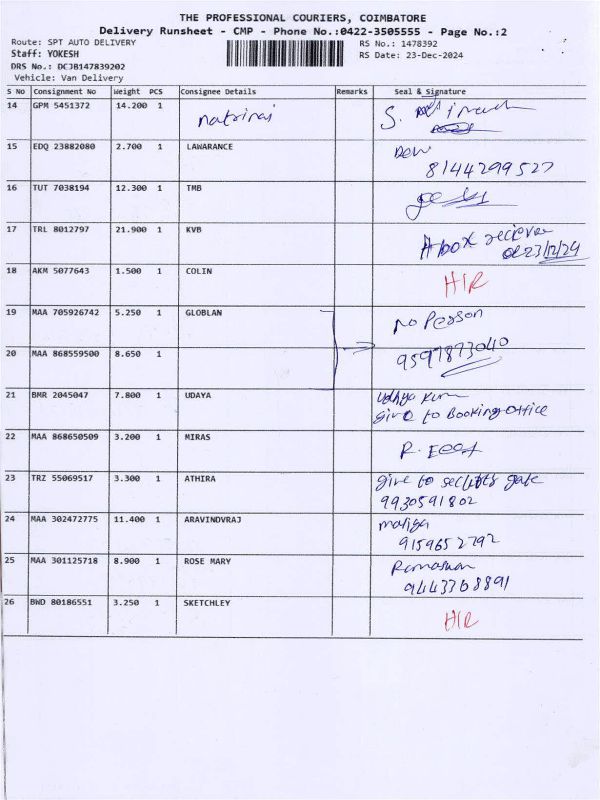 THE PROFESSIONAL COURIERS, COIMBATORE
Delivery Runsheet - CMP - Phone No.:0422-3505555 - Page No.:2
Route: SPT AUTO DELIVERY
RS No.: 1478392
Staff: YOKESH
RS Date: 23-Dec-2024
DRS No.: DCJB147839202
Vehicle: Van Delivery
S No Consignment No Weight PCS Consignee Details Remarks Seal & Signature
14 GPM 5451372 14.200 1 natriraj S.
15 EDQ 23882080 2.700 1 LAWARANCE
8144299527
16 TUT 7038194 12.300 1 TMB
17 TRL 8012797 21.900 1 KVB
box
23/12/24
18 AKM 5077643 1.500 1 COLIN
19 MAA 705926742 5.250 1 GLOBLAN
no Person
20 MAA 868559500 8.650 1
9597873040
21 BMR 2045047 7.800 1 UDAYA
give to Booking office
22 MAA 868650509 3.200 1 MIRAS
R.
23 TRZ 55069517 3.300 1 ATHIRA
give to gate
9930591802
24 MAA 302472775 11.400 1 ARAVINDVRAJ
9159652792
25 MAA 301125718 8.900 1 ROSE MARY
9443368891
26 BWD 80186551 3.250 1 SKETCHLEY